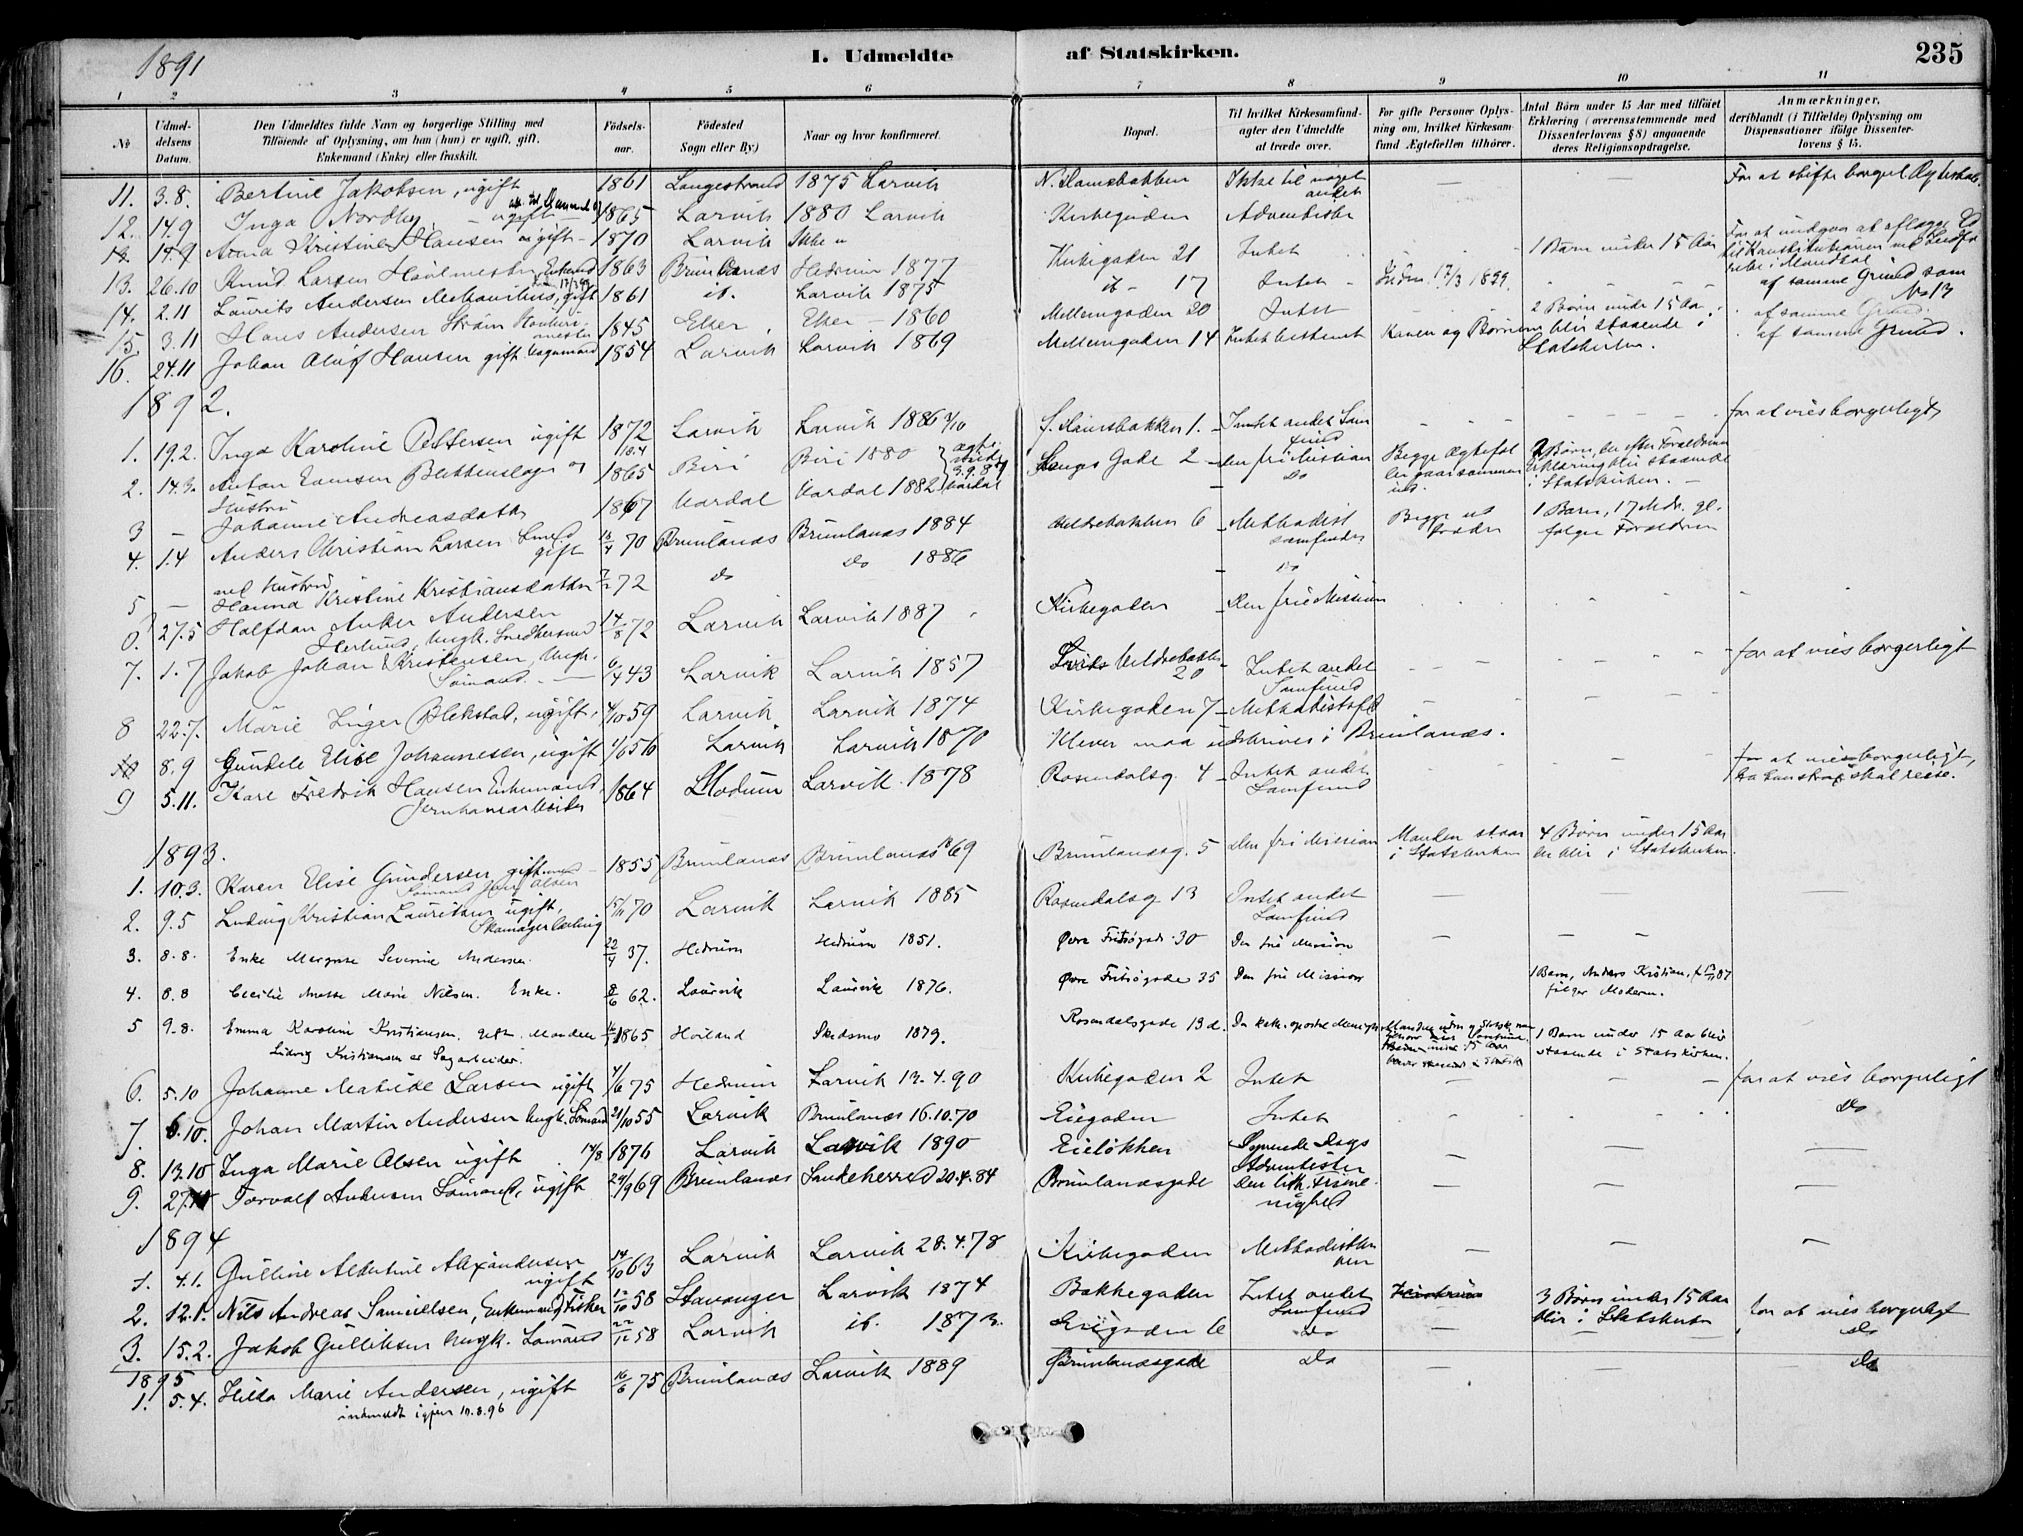 1891
I. Udmeldte af Statskirken.
235
1 2 3 4 5 6 7 8 9 10 11
No
Udmeldelsens Datum.
Den Udmeldtes fulde Navn og borgerlige Stilling med Tilføiende af Oplysning, om han (hun) er ugift, gift, Enkemand (Enke) eller fraskilt.
Fødselsaar.
Fødested Sogn eller By)
Naar og hvor konfirmeret.
Bopæl.
Til hvilket Kirkesamfund agter den Udmeldte at træde over.
For gifte Personer Oplysning om, hvilket Kirkesamfund Ægtefællen tilhører.
Antal Børn under 15 Aar med tilføiet Erklæring (overensstemmende med Dissenterlovens § 8) angaaende deres Religionsopdragelse.
Anmærkninger, deriblandt (i Tilfælde) Oplysning om Dispensationer ifølge Dissenterlovens § 15.
11. 3.8. Bertine Jakobsen, ugift 1861 Langestrand 1875 Larvik Ikke til noget andet — — For at stifte borgerl.
12. 14.9 Inga Nordby, ugift 1865 Larvik 1880 Larvik Kirkegaden Adventister
14.9 Anna Kristine Hansen ugift 1870 Larvik Ikke
13. 26.10 Knud Larsen Enkemd 1863 Brunlanæs Hedrum 1877 Kirkegaden 21 Intet 1 Barn under 15 Aar For at undgaa at aflægge Ed til Konstitutionen
14. 2.11 Laurits Andersen gift 1861 ib. Larvik 1875 ib - 17 Intet 17/3 1899 af samme Grund som No 13
15. 3.11 Hans Andersen Strøm 1845 Eker Eker - 1860 Mellemgaden 20 Intet 2 Børn under 15 Aar af samme Grund
16. 24.11 Johan Oluf Hansen gift 1854 Larvik Larvik 1869 Mellemgaden 14 Intet bestemt Konen og Børnene blir staaende i Statskirken. af samme Grund.
1892.
1. 19.2. Inga Karoline Pettersen ugift 1872 Larvik Larvik 1886 3/10 Intet andet Samfund — for at vies borgerligt
2. 14.3. Anton Evensen Blikkenslager og Hustru 1865 Biri Biri 1880 Langes Gade 2 - den fri Mission Begge Ægtefæller gaar sammen ud. 2 Børn, der efter Forældrenes Erklæring blir staaende i Statskirken. —
3 — Johanne Andreasdatter 1867 Vardal Vardal 1882 Do
4. 1.4 Anders Christian Larsen Smed gift 70 Brunlanæs Brunlanæs 1884 6 - Methodist samfundet Begge udtræder 1 Barn, 17 Mdr. gl. følger Forældrene
5 — med Hustru Hanna Kristine Kristiansdatter 72 do do 1886 do
27.5 Halfdan Anker Andersen 14/8 72 Larvik Larvik 1887 Kirkegaden - Den frie Mission
7. 1.7 Jakob Johan Kristensen, Ungk. Sømand. 6/4 43 Larvik Larvik 1857 20 Intet andet Samfund for at vies borgerligt
8 22.7. Marie Inger Blekstad, ugift 4/10 59 Larvik Larvik 1874 Kirkegaden 7 -
8.9 Gundele Elise Johannesen, ugift 56 Larvik Larvik 1870 Klever maa udskrives i Brunlanæs.
9 5.11. Karl Fredrik Hansen Enkemand, Jernbanearbeider 1864 Modum Larvik 1878 Rosendalsg. 4 - Intet andet Samfund for at vies borgerligt, skal reise.
1893.
1. 10.3. Karen Elise Gundersen gift med Sømand Olsen 1855 Brunlanæs Brunlanæs 1869 Brunlanæsg. 5 den fri Mission Manden staar i Statskirken 4 Børn under 15 Aar der blir i Statskirken.
2. 9.5 Ludvig Kristian Lauritsen ugift, Skomagerlærling 15/11 70 Larvik Larvik 1885 Rosendalsg 13 Intet andet Samfund — — —
3. 8.8. Enke Margrete Severine Andersen. 22/4 37. Hedrum Hedrum 1851. Øvre Fritsøgade 30 Den frie Mission — — —
4. 8.8 Cecilie Anette Marie Nilsen. Enke. 8/6 62. Laurvik Laurvik 1876. Øvre Fritsøgade 35 Den frie Mission 1 Barn, Anders Kristian, følger Moderen.
5 9.8. Emma Karoline Kristiansen, Gift. Manden Ludvig Kristiansen er Sagarbeider. 1865 Høiland Skedsmo 1879. Rosendalsgade 13 d. Den kath. apostol. Menighed 1 Barn under 15 Aar blir staaende i Statskirken.
6. 5.10 Johanne Mathilde Larsen ugift 4/6 75 Hedrum Larvik 13.4.90 Kirkegaden 2 Intet — — for at vies borgerligt
7. 6.10. Johan Martin Andersen Ungk. Sømand 21/10 55 Larvik Brunlanæs 16.10.70 Eiegaden Intet Do
8. 13.10 Inga Marie Olsen ugift 14/8 1876 Larvik Larvik 1890 Eieløkken Syvende Dags Adventister — — —
9. Torvald Andersen Sømand, ugift 24/9 69 Brunlanæs Sandeherred 20.4.84 Brunlanæsgade Den luth. Frimenighed — — —
1894
1. 4.1. Gulline Albertine Alexandersen ugift 14/10 63 Larvik Larvik 28.4.78 Kirkegaden — — —
2. 12.1. Nils Andreas Samuelsen, Enkemand, Fisker 12/10 58 Stavanger Larvik 1874 Bakkegaden Intet andet Samfund 3 Børn under 15 Aar blir i Statskirken for at vies borgerligt
3. 15.2. Jakob Gulliksen Ungk. Sømand 22/12 58 Larvik ib. 1873. Eiegaden 6 do — — do
1895
1. 5.4. Hilda Marie Andersen, ugift 16/6 75 Brunlanæs Larvik 1889 Brunlanæsgade do — — do
indmeldt igjen 10.8.96